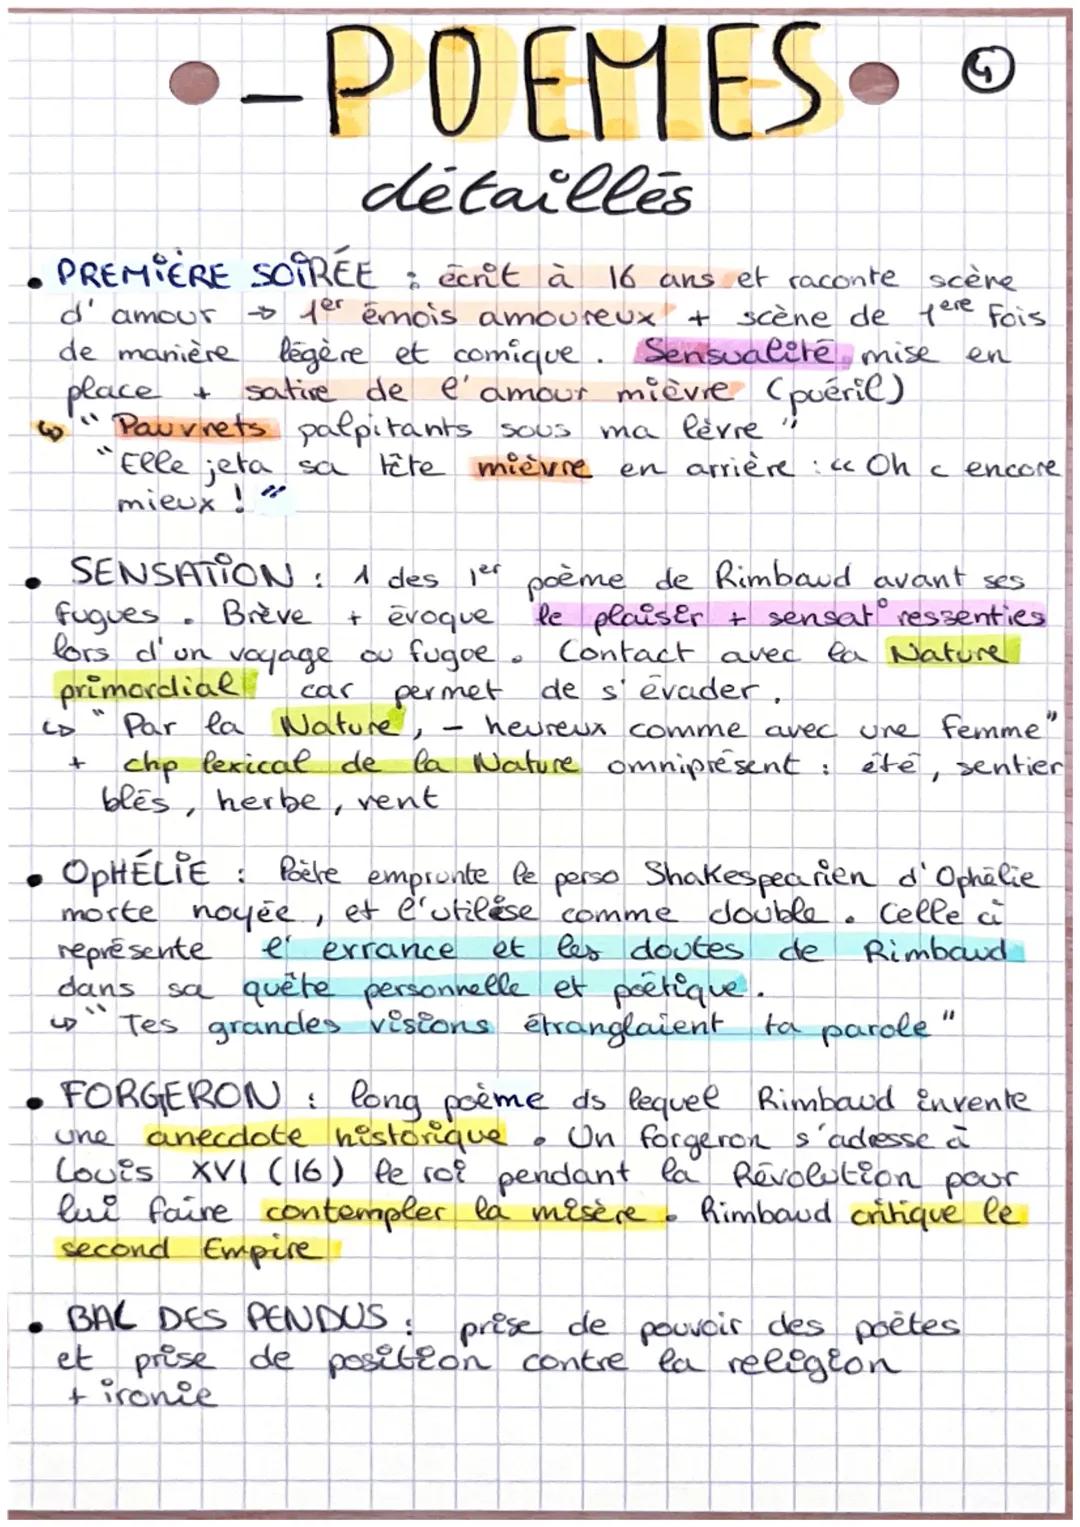 - POEMES
④
détaillés
• PREMIÈRE SOIRÉE : écrit à 16 ans et raconte scène
d'amour → 1er émois amoureux + scène de 1ere fois
de manière légère et comique. Sensualité mise en
place + satire de l'amour mièvre (puéril)
↳ "Pauvrets palpitants sous ma lèvre"
"Elle jeta sa tête mièvre en arrière : « Oh c encore
mieux ! "
• SENSATION : 1 des 1er poème de Rimbaud avant ses
fugues. Brève + évoque le plaisir + sensat° ressenties
lors d'un voyage ou fugue. Contact avec la Nature
primordial car permet de s'évader.
↳ "Par la Nature, - heureux comme avec une femme"
+ chp lexical de la Nature omniprésent : été, sentier
blés, herbe, vent
• OPHÉLIE : Poète emprunte le perso Shakespearien d'Ophélie
morte noyée, et l'utilise comme double. Celle ci
représente l'errance et les doutes de Rimbaud
dans sa quête personnelle et poétique.
↳ "Tes grandes visions étranglaient ta parole"
• FORGERON : long poème ds lequel Rimbaud invente
une anecdote historique. Un forgeron s'adresse à
Louis XVI (16) le roi pendant la Révolution pour
lui faire contempler la misère. Rimbaud critique le
second Empire
• BAL DES PENDUS : prise de pouvoir des poètes
et prise de position contre la religion
+ ironie